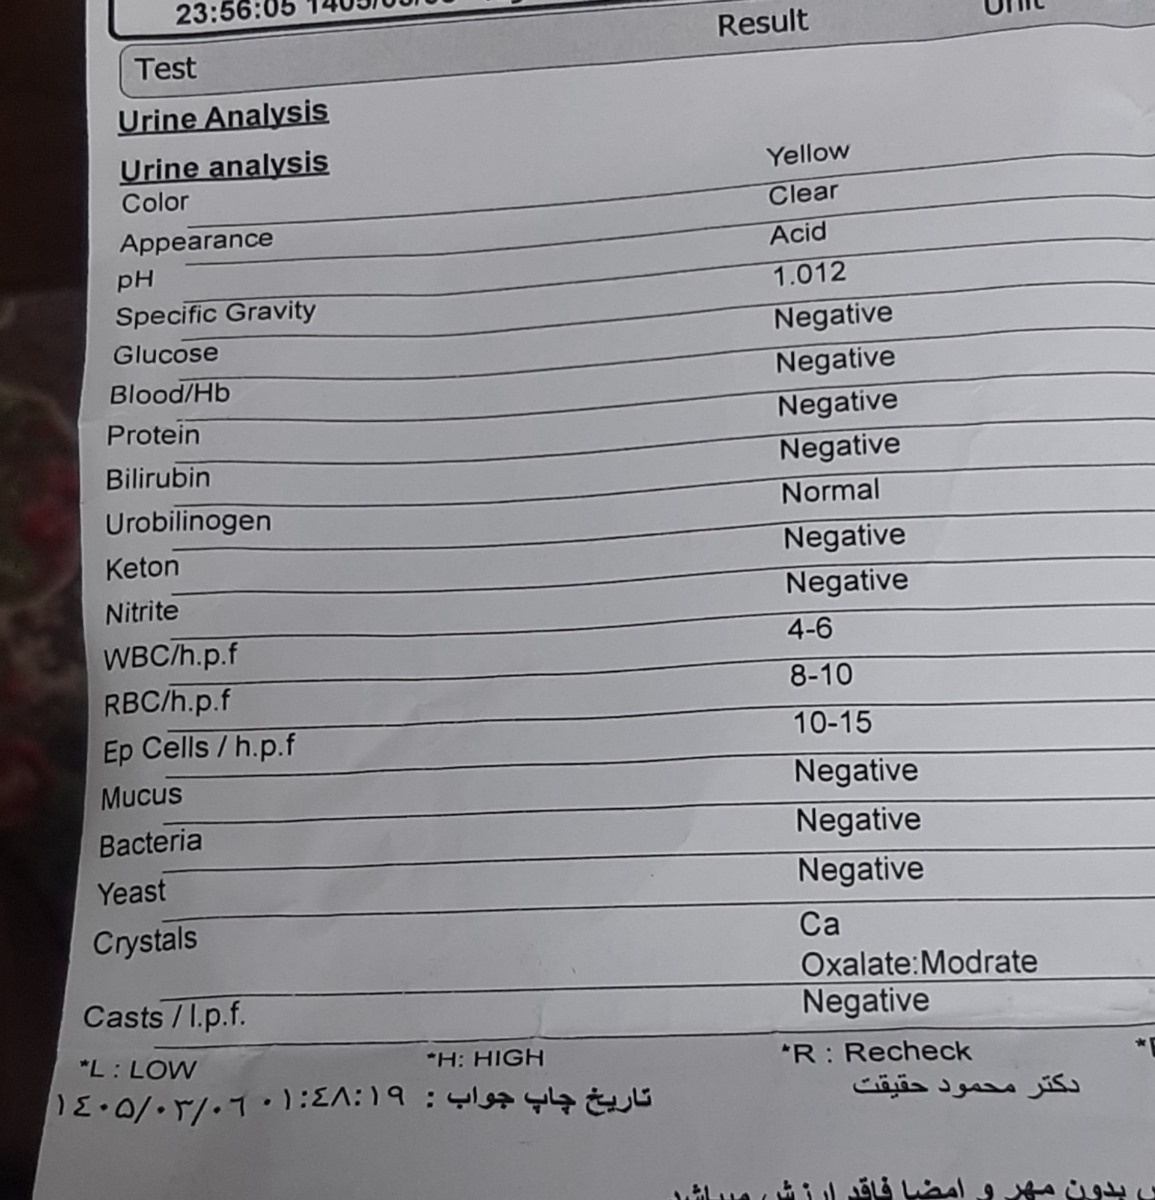 23:56:05
Result
Unit
Test
Urine Analysis
Urine analysis
Color Yellow
Appearance Clear
pH Acid
Specific Gravity 1.012
Glucose Negative
Blood/Hb Negative
Protein Negative
Bilirubin Negative
Urobilinogen Normal
Keton Negative
Nitrite Negative
WBC/h.p.f 4-6
RBC/h.p.f 8-10
Ep Cells / h.p.f 10-15
Mucus Negative
Bacteria Negative
Yeast Negative
Crystals Ca
Oxalate:Modrate
Casts / l.p.f. Negative
*L : LOW *H: HIGH *R : Recheck
دکتر محمود حقیقت
تاریخ چاپ جواب : ۰۱:٤۸:۱۹ ۱٤۰۵/۰۳/۰٦
بدون مهر و امضا فاقد ارزش میباشد